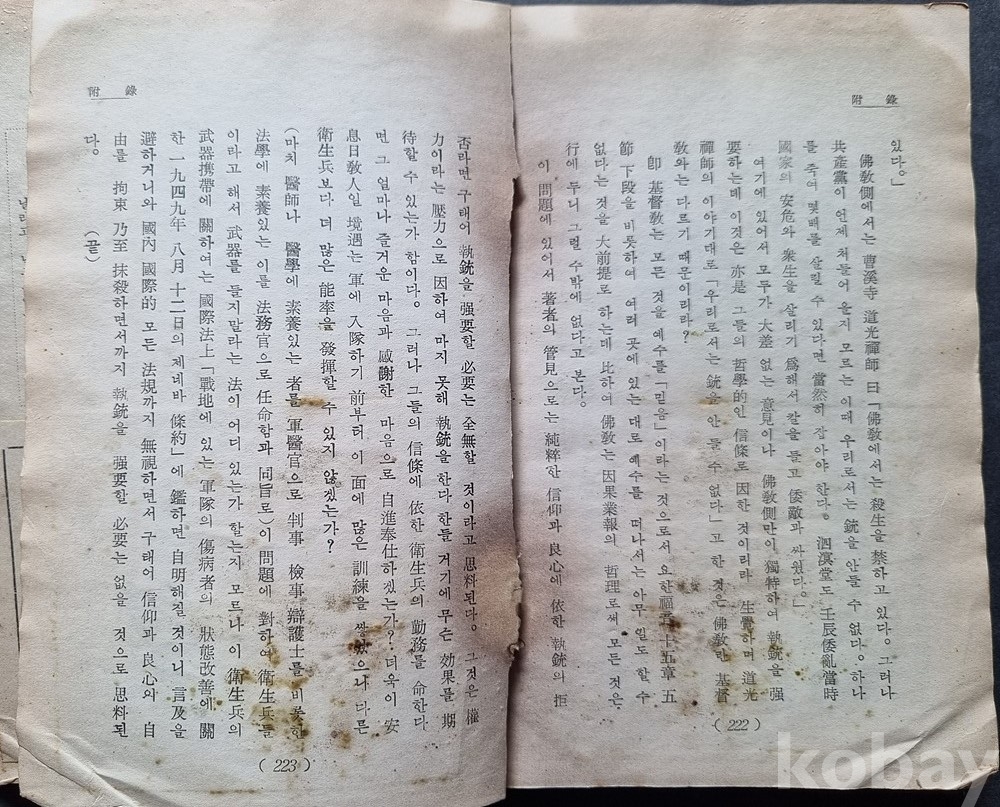 附 錄
있다。」
佛敎側에서는 曹溪寺 道光禪師曰「佛敎에서는 殺生을 禁하고 있다。그러나
共產黨이 언제 처들어 올지 모르는 이때 우리로서는 銃을 안들 수 없다。하나
를 죽여 몇빼를 살릴 수 있다면 當然히 잡아야 한다。 泗溟堂도 壬辰倭亂當時
國家의 安危와 衆生을 살리기 爲해서 칼을 들고 倭敵과 싸웠다。」
여기에 있어서 모두가 大差 없는 意見이나 佛敎側만이 獨特하여 執銃을 强
要하는데 이것은 亦是 그들의 哲學的인 信條로 因한 것이리라 生覺하며 道光
禪師의 이야기대로 「우리로서는 銃을 안 들 수 없다」고 한 것은 佛敎란 基督
敎와는 다르기 때문이리라?
卽 基督敎는 모든 것을 예수를 「믿음」이라는 것으로서 요한福音 十五章 五
節 下段을 비롯하여 여러 곳에 있는 대로 예수를 떠나서는 아무 일도 할 수
없다는 것을 大前提로 하는데 比하여 佛敎는 因果業報의 哲理로써 모든 것은
行에 두니 그럴 수밖에 없다고 본다。
이 問題에 있어서 著者의 管見으로는 純粹한 信仰과 良心에 依한 執銃의 拒
( 222 )
附 錄
否라면 구태어 執銃을 强要할 必要는 全無할 것이라고 思料된다。그것은 權
力이라는 壓力으로 因하여 마지 못해 執銃을 한다 한들 거기에 무슨 效果를 期
待할 수 있는가 함이다。그러나 그들의 信條에 依한 衛生兵의 勤務를 命한다
면 그 얼마나 즐거운 마음과 感謝한 마음으로 自進奉仕하겠는가? 더욱이 安
息日敎人일 境遇는 軍에 入隊하기 前부터 이 面에 많은 訓練을 쌓았으나 다른
衛生兵보다 더 많은 能率을 發揮할 수 있지 않겠는가?
(마치 醫師나 醫學에 素養있는 者를 軍醫官으로 判事 檢事 辯護士를 비롯한
法學에 素養있는 이를 法務官으로 任命함과 同旨로)이 問題에 對하여 衛生兵들
이라고 해서 武器를 들지말라는 法이 어디 있는가 할는지 모르나 이 衛生兵의
武器携帶에 關하여는 國際法上「戰地에 있는 軍隊의 傷病者의 狀態改善에 關
한 一九四九年 八月 十二日의 제네바 條約」에 鑑하면 自明해질 것이니 言及을
避하거니와 國內 國際的 모든 法規까지 無視하면서 구태어 信仰과 良心의 自
由를 拘束 乃至 抹殺하면서까지 執銃을 强要할 必要는 없을 것으로 思料된
다。 (끝)
( 223 )
kobay